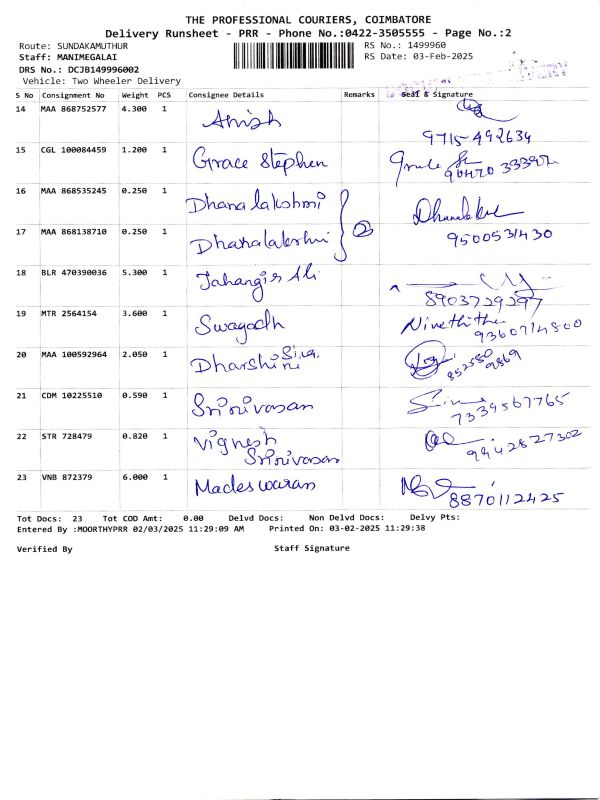 THE PROFESSIONAL COURIERS, COIMBATORE
Delivery Runsheet - PRR - Phone No.:0422-3505555 - Page No.:2
Route: SUNDAKAMUTHUR RS No.: 1499960
Staff: MANIMEGALAI RS Date: 03-Feb-2025
DRS No.: DCJB149996002
Vehicle: Two Wheeler Delivery
S No Consignment No Weight PCS Consignee Details Remarks Seal & Signature
14 MAA 868752577 4.300 1 Ahish
9715492634
15 CGL 100084459 1.200 1 Grace Stephen
16 MAA 868535245 0.250 1 Dhanalakshmi
17 MAA 868138710 0.250 1 Dhanalakshmi 2 9500531430
18 BLR 470390036 5.300 1 Jahangir Ali
8903729297
19 MTR 2564154 3.600 1 Swagadh Nivethitha
9360714800
20 MAA 100592964 2.050 1 Dharshini Siva.
852580 9869
21 CDM 10225510 0.590 1 Srinivasan
7339567765
22 STR 728479 0.820 1 Vignesh
Srinivasan 9942827302
23 VNB 872379 6.000 1 Madeswaran
8870112425
Tot Docs: 23 Tot COD Amt: 0.00 Delvd Docs: Non Delvd Docs: Delvy Pts:
Entered By :MOORTHYPRR 02/03/2025 11:29:09 AM Printed On: 03-02-2025 11:29:38
Verified By Staff Signature